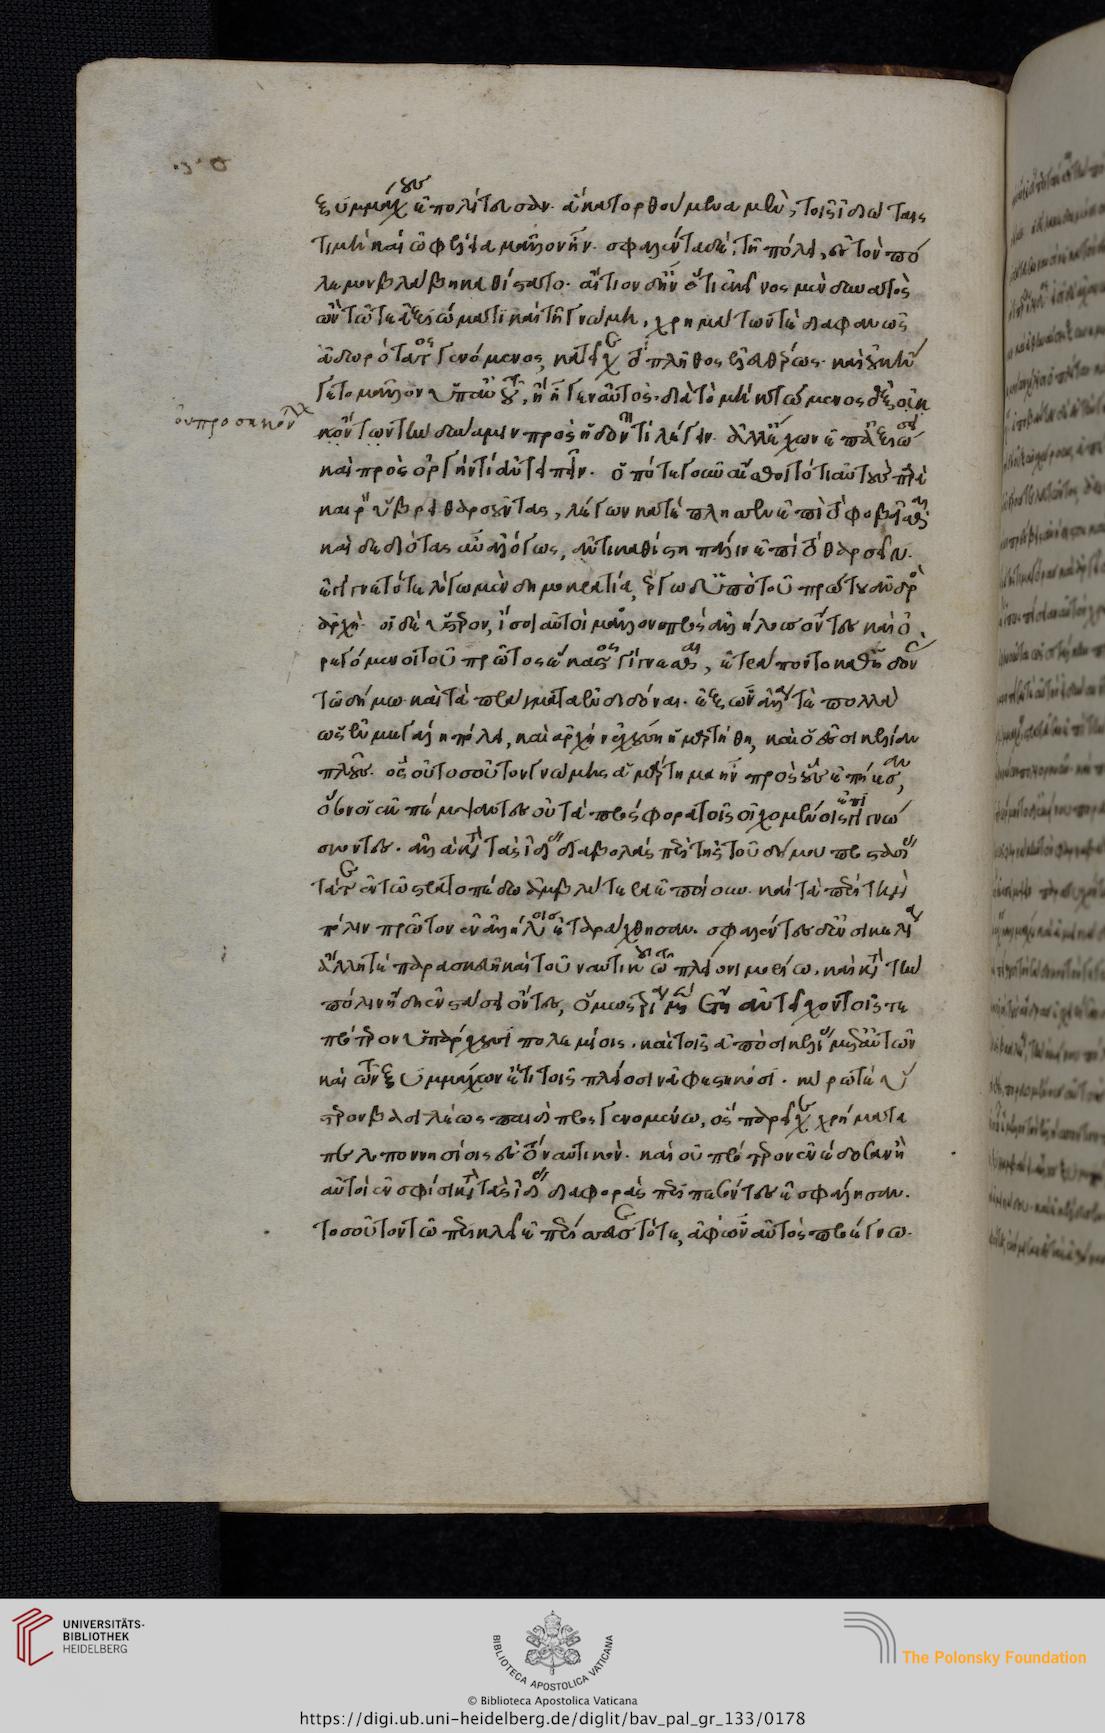 ξυμμάχους ἐπολίτευσαν. ἃ κατορθούμενα μὲν, τοῖς ἰδιώταις
τιμὴ καὶ ὠφελεία μᾶλλον ἦν. σφαλέντα δὲ, τῆ πόλει, ἐς τὸν πό
λεμον βλάβη καθίστατο. αἴτιον δ' ἦν ὅτι ἐκεῖνος μὲν δυνατὸς
ὢν τῶ τε ἀξιώματι καὶ τῆ γνώμη, χρημάτων τὲ διαφανῶς
ἀδωρότατος γενόμενος, κατεῖχε τὸ πλῆθος ἐλευθέρως. καὶ οὐκ ἤ
γετο μᾶλλον ὑπ' αὐτοῦ, ἢ ἦγεν αὐτὸς. διὰ τὸ μὴ κτώμενος ἐξ οἰκ
οὐ προσηκόν
κόντων τὴν δύναμιν πρὸς ἡδονήν τι λέγειν. ἀλλ' ἔχων ἐπ' ἀξιώσει
καὶ πρὸς ὀργήν τί ἀντειπεῖν. ὁπότε γοῦν αἴσθοιτό τι αὐτοὺς παρὰ
καιρὸν ὕβρει θαρσοῦντας, λέγων κατέπλησσεν ἐπὶ τὸ φοβεῖσθαι.
καὶ δεδιότας αὖ ἀλόγως, ἀντικαθίστη πάλιν ἐπὶ τὸ θαρσεῖν.
ἐγίγνετό τε λόγω μὲν δημοκρατία, ἔργω δ' ὑπὸ τοῦ πρώτου ἀνδρὸς
ἀρχή. οἱ δὲ ὕστερον, ἴσοι αὐτοὶ μᾶλλον πρὸς ἀλλήλους ὄντες καὶ ὀ
ρεγόμενοι τοῦ πρῶτος ἕκαστος γίγνεσθαι, ἐτράποντο καθ' ἡδονὰς
τῶ δήμω καὶ τὰ πράγματα ἐνδιδόναι. ἐξ ὧν ἄλλα τὲ πολλὰ
ὡς ἐν μεγάλη πόλει, καὶ ἀρχὴν ἐχούση ἡμαρτήθη, καὶ ὁ ἐς σικελίαν
πλοῦς. ὃς οὐ τοσοῦτον γνώμης ἁμάρτημα ἦν πρὸς οὓς ἐπήεσαν,
ὅσον οἱ ἐκπέμψαντες οὐ τὰ πρόσφορα τοῖς οἰχομένοις ἐπιγιγνώ
σκοντες. ἀλλὰ κατὰ τὰς ἰδίας διαβολὰς περὶ τῆς τοῦ δήμου προστασίας
τά τε ἐν τῶ στρατοπέδω ἀμβλύτερα ἐποίουν. καὶ τὰ περὶ τὴν
πόλιν πρῶτον ἐν ἀλλήλοις ἐταράχθησαν. σφαλέντες δ' ἐν σικελία
ἄλλη τὲ παρασκευῆ καὶ τοῦ ναυτικοῦ τῶ πλείονι μορίω. καὶ κατὰ τὴν
πόλιν ἤδη ἐν στάσει ὄντες, ὅμως τρία μὲν ἔτη ἀντεῖχον τοῖς τε
πρότερον ὑπάρχουσι πολεμίοις. καὶ τοῖς ἀπὸ σικελίας μετ' αὐτῶν
καὶ τῶν ξυμμάχων ἔτι τοῖς πλείοσιν ἀφεστηκόσι. κύρω τὲ ὕ
στερον βασιλέως παιδὶ προσγενομένω, ὃς παρεῖχε χρήματα
πελοποννησίοις ἐς τὸ ναυτικὸν. καὶ οὐ πρότερον ἐνέδοσαν ἢ
αὐτοὶ ἐν σφίσι κατὰ τὰς ἰδίας διαφορὰς περιπεσόντες ἐσφάλησαν.
τοσοῦτον τῶ περικλεῖ ἐπερίσσευσε τότε, ἀφ' ὧν αὐτὸς προέγνω.
UNIVERSITÄTS-
BIBLIOTHEK
HEIDELBERG
BIBLIOTECA APOSTOLICA VATICANA
The Polonsky Foundation
© Biblioteca Apostolica Vaticana
https://digi.ub.uni-heidelberg.de/diglit/bav_pal_gr_133/0178